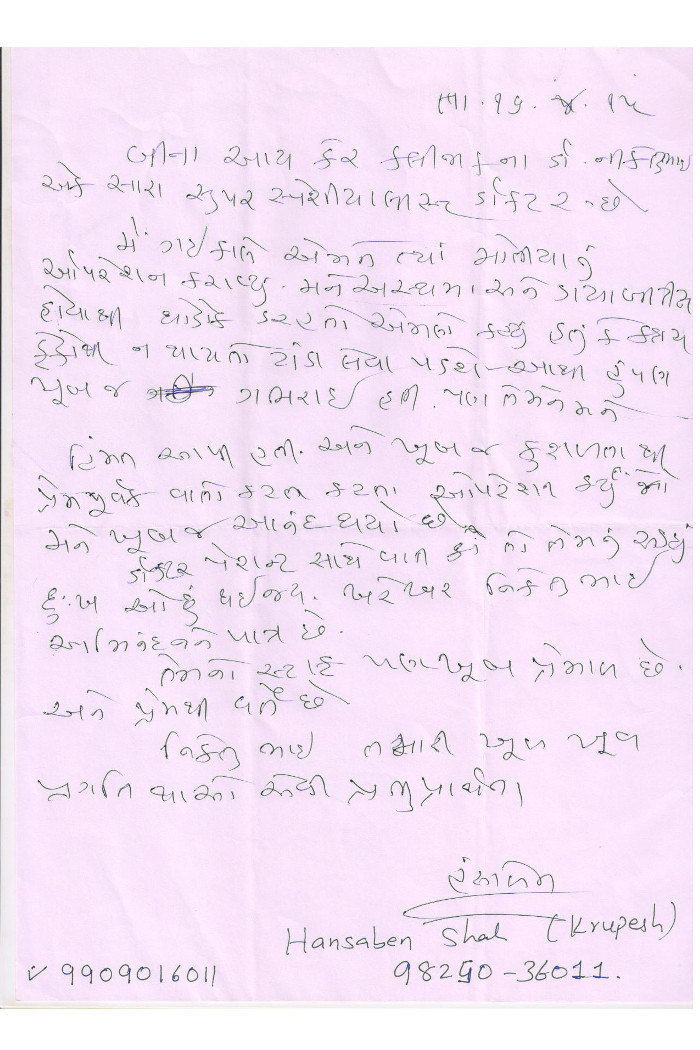 તા. ૧૬. ૪. ૧૫
બીના આય કેર કલીનીકના ડૉ. નીકેતુભાઇ
એક સારા સુપર સ્પેશીયાલીસ્ટ ડૉકટર છે
મેં ગઇકાલે એમને ત્યાં મોતીયાનું
ઓપરેશન કરાવ્યું. મને અસ્થમા અને ડાયાબીટીસ
હોવાથી થોડોક ડર હતો એમણે કહ્યું હતું કે કદાચ
ફેકોથી ન થાય તો ટાંકા લેવા પડશે આથી હું પણ
ખૂબ જ ગભરાઇ હતી. પણ તેમને મને
હિંમત આપી હતી. અને ખૂબ જ કુશળતાથી
પ્રેમપુર્વક વાતો કરતા કરતા ઓપરેશન કર્યું
મને ખૂબ જ આનંદ થયો છે.
ડૉકટર પેશન્ટ સાથે વાત કરે તો તેમનું અડધું
દુ:ખ ઓછું થઇ જાય. ખરેખર નિકેતુભાઇ
અભિનંદનને પાત્ર છે.
તેમનો સ્ટાફ પણ ખૂબ પ્રેમાળ છે.
અને પ્રેમથી વર્તે છે
નિકેતુભાઇ તમારી ખૂબ ખૂબ
પ્રગતિ થાઓ એવી પ્રભુપ્રાર્થના
હંસાબેન
Hansaben Shah (Krupesh)
✓ 9909016011 98250-36011.